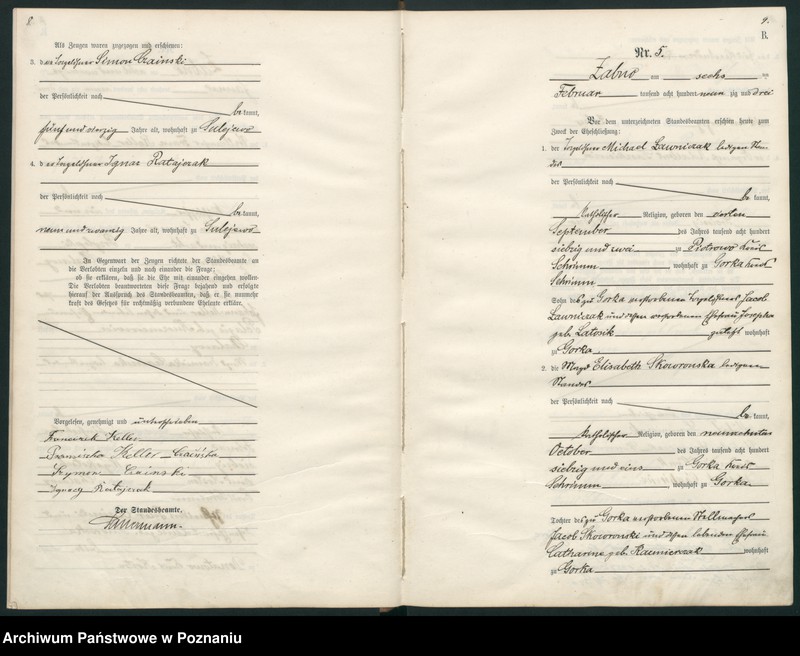 8
Als Zeugen waren zugezogen und erschienen:
3. der Simon Czainski
der Persönlichkeit nach
be kannt,
fünf und vierzig Jahre alt, wohnhaft zu Sulejewo
4. der Ignac Ratajczak
der Persönlichkeit nach
be kannt,
neun und zwanzig Jahre alt, wohnhaft zu Sulejewo
In Gegenwart der Zeugen richtete der Standesbeamte an
die Verlobten einzeln und nach einander die Frage:
ob sie erklären, daß sie die Ehe mit einander eingehen wollen.
Die Verlobten beantworteten diese Frage bejahend und erfolgte
hierauf der Ausspruch des Standesbeamten, daß er sie nunmehr
kraft des Gesetzes für rechtmäßig verbundene Eheleute erkläre.
Vorgelesen, genehmigt und unterschrieben
Franciszek Heller
Heller
Szymon Czainski
Ignacy Ratajczak
Der Standesbeamte.
9.
B.
Nr. 5.
Zabno am sechs ten
Februar tausend acht hundert neun zig und drei
Vor dem unterzeichneten Standesbeamten erschien heute zum
Zweck der Eheschließung:
1. der Michael Lawniczak ledigen Stan-
des
der Persönlichkeit nach
be kannt,
katholischer Religion, geboren den
September des Jahres tausend acht hundert
siebzig und zwei zu Piotrowo Kreis
Schrimm, wohnhaft zu Gorka Kreis
Schrimm
Sohn des zu Gorka verstorbenen Jacob
Lawniczak und dessen verstorbenen Ehefrau Josepha
geb. Latosik wohnhaft
zu Gorka.
2. die Magd Elisabeth Skoworonska ledigen
Standes
der Persönlichkeit nach
be kannt,
katholischer Religion, geboren den
October des Jahres tausend acht hundert
siebzig und eins zu Gorka Kreis
Schrimm, wohnhaft zu Gorka
Tochter des zu Gorka verstorbenen Stellmachers
Jacob Skoworonski und dessen lebenden Ehefrau
Catharina geb. Kazmierczak wohnhaft
zu Gorka
Archiwum Państwowe w Poznaniu